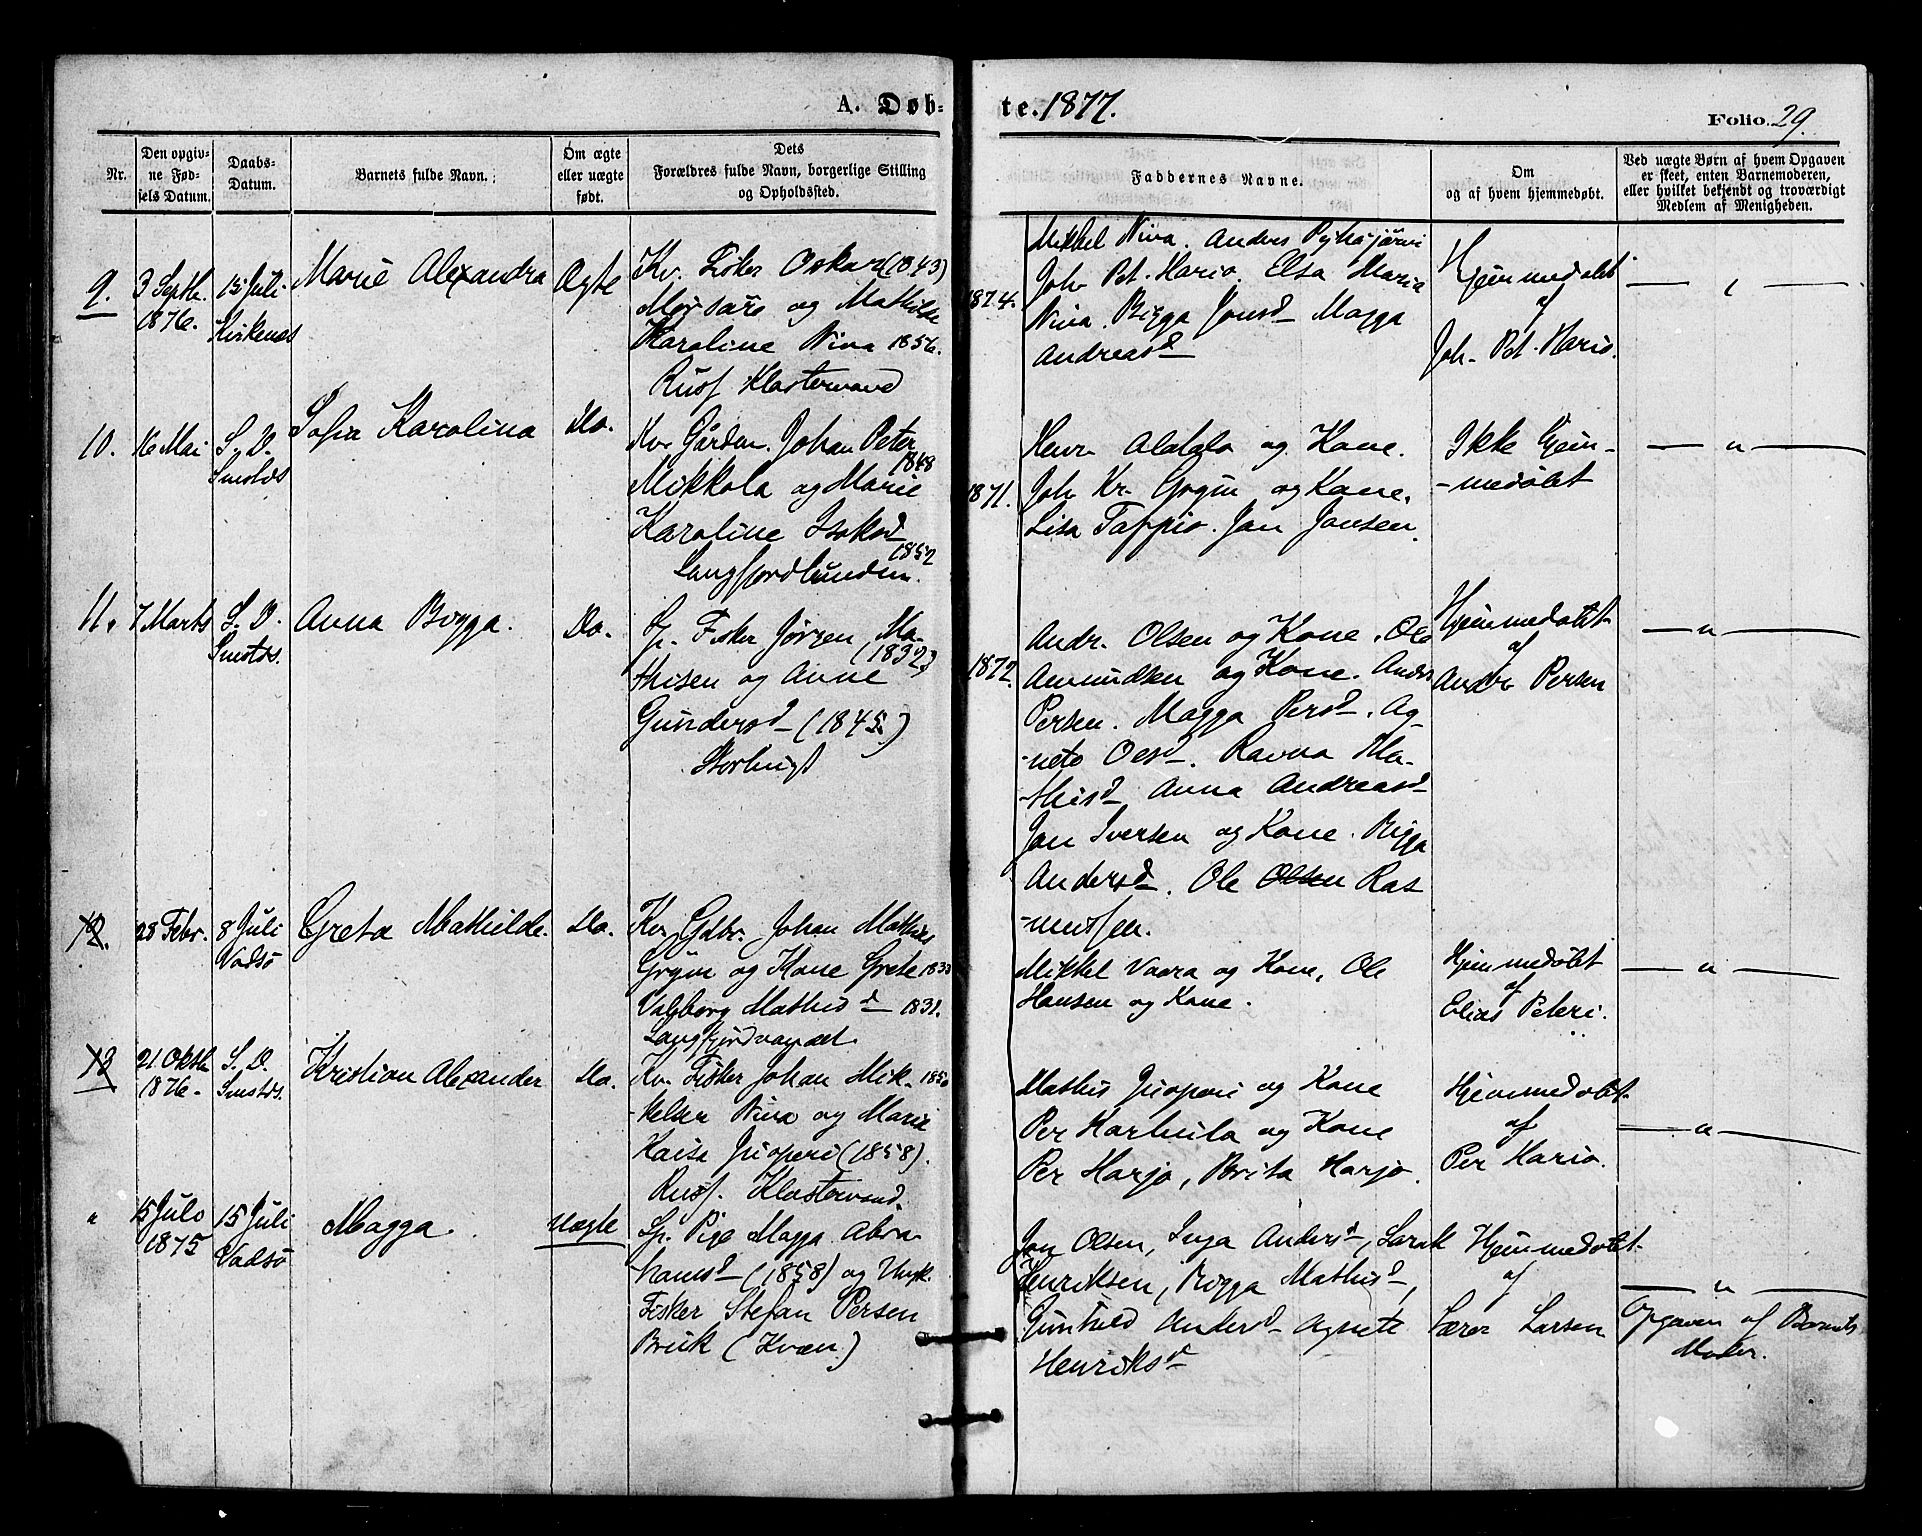 A. Døb-
te. 1877.
Folio. 29.
Nr.
Den opgiv-
ne Fød-
sels Datum.
Daabs-
Datum.
Barnets fulde Navn.
Om ægte
eller uægte
født.
Dets
Forældres fulde Navn, borgerlige Stilling
og Opholdssted.
Faddernes Navne.
Om
og af hvem hjemmedøbt.
Ved uægte Børn af hvem Opgaven
er skeet, enten Barnemoderen,
eller hvilket bekjendt og troværdigt
Medlem af Menigheden.
9.
3 Septbr.
1876.
15 Juli
Kirkenes
Marie Alexandra
Ægte
Kv. Fisker Oskar (1843)
og Mathilde
Karoline Niva 1856.
Russ. Klostervand
1874.
Mikkel Niva. Anders Pyhäjärvi
Joh. Pet. Hario. Elsa Maria
Niva. Bigga Jonsd Magga
Andreasd
Hjemmedøbt
af
Joh. Pet. Hario.
10.
16 Mai
S. D.
Smstds
Sofia Karolina
Do.
Kv. Gårdm. Johan Peter
1848
Mikkola og Marie
Karoline Isaksd
1852
Langfjordbunden.
1871.
Henr. Alatalo og Kone.
Joh. Kr. Grym og Kone.
Lisa Tappio. Jon Jonsen.
Ikke hjem-
-medøbt
— " —
11.
7 Marts
S. D.
Smstds.
Anna Bigga.
Do.
Lp. Fisker Jørgen Ma-
(1832)
thisen og Anne
Gundersd (1845.)
1872.
Andr. Olsen og Kone. Ole
Amundsen og Kone. Anders
Persen. Magga Persd. Ag-
-nete Olesd. Ravna Ma-
-thisd Anna Andreasd
Jon Iversen og Kone. Bigga
Andersd. Ole Olsen Ras
-mussen.
Hjemmedøbt
af
Andr. Persen
— " —
12.
28 Febr.
8 Juli
Vadsø
Greta Mathilde.
Do.
Kv. Gdbr. Johan Mathias
Grym og Kone Grete
Valborg Mathisd 1832.
Mikkel Vaara og Kone, Ole
Hansen og Kone.
Hjemmedøbt
af
Elias Peteri.
— " —
13
21. Oktbr.
1876.
S. D.
Smstds.
Kristian Alexander
Do.
Kv. Fisker Johan Mik- 1850
-kelsen Niva og Marie
Kaisa Juoperi (1858).
Russ. Klostervand.
Mathis Juoperi og Kone
Per Karhula og Kone
Per Harjo, Brita Harjo.
Hjemmedøbt
af
Per Hario.
— " —
"
15 Juli
1875
15 Juli
Vadsø
Magga.
Uægte
Lp. Pige Magga Abra-
hamsd (1858) og Ungk.
Fisker Stefan Persen
Brik (Kvæn.)
Jon Olsen, Inga Andersd, Sarak
Henriksen, Bigga Mathisd,
Gunhild Andersd Agnete
Henriksd
Hjemmedøbt
af
Lærer Larsen
— " —
Opgaven af Barnets
Moder.